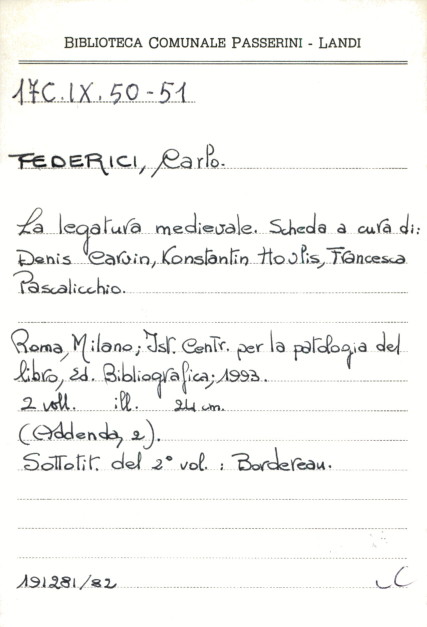 BIBLIOTECA COMUNALE PASSERINI - LANDI
17C.IX.50-51
FEDERICI, Carlo.
La legatura medievale. Scheda a cura di:
Denis Carvin, Konstantin Houlis, Francesca
Pascalicchio.
Roma, Milano; Ist. Centr. per la patologia del
libro, Ed. Bibliografica; 1993.
2 voll. ill. 24 cm.
(Addenda, 2).
Sottotit. del 2° vol.: Bordereau.
191281/82